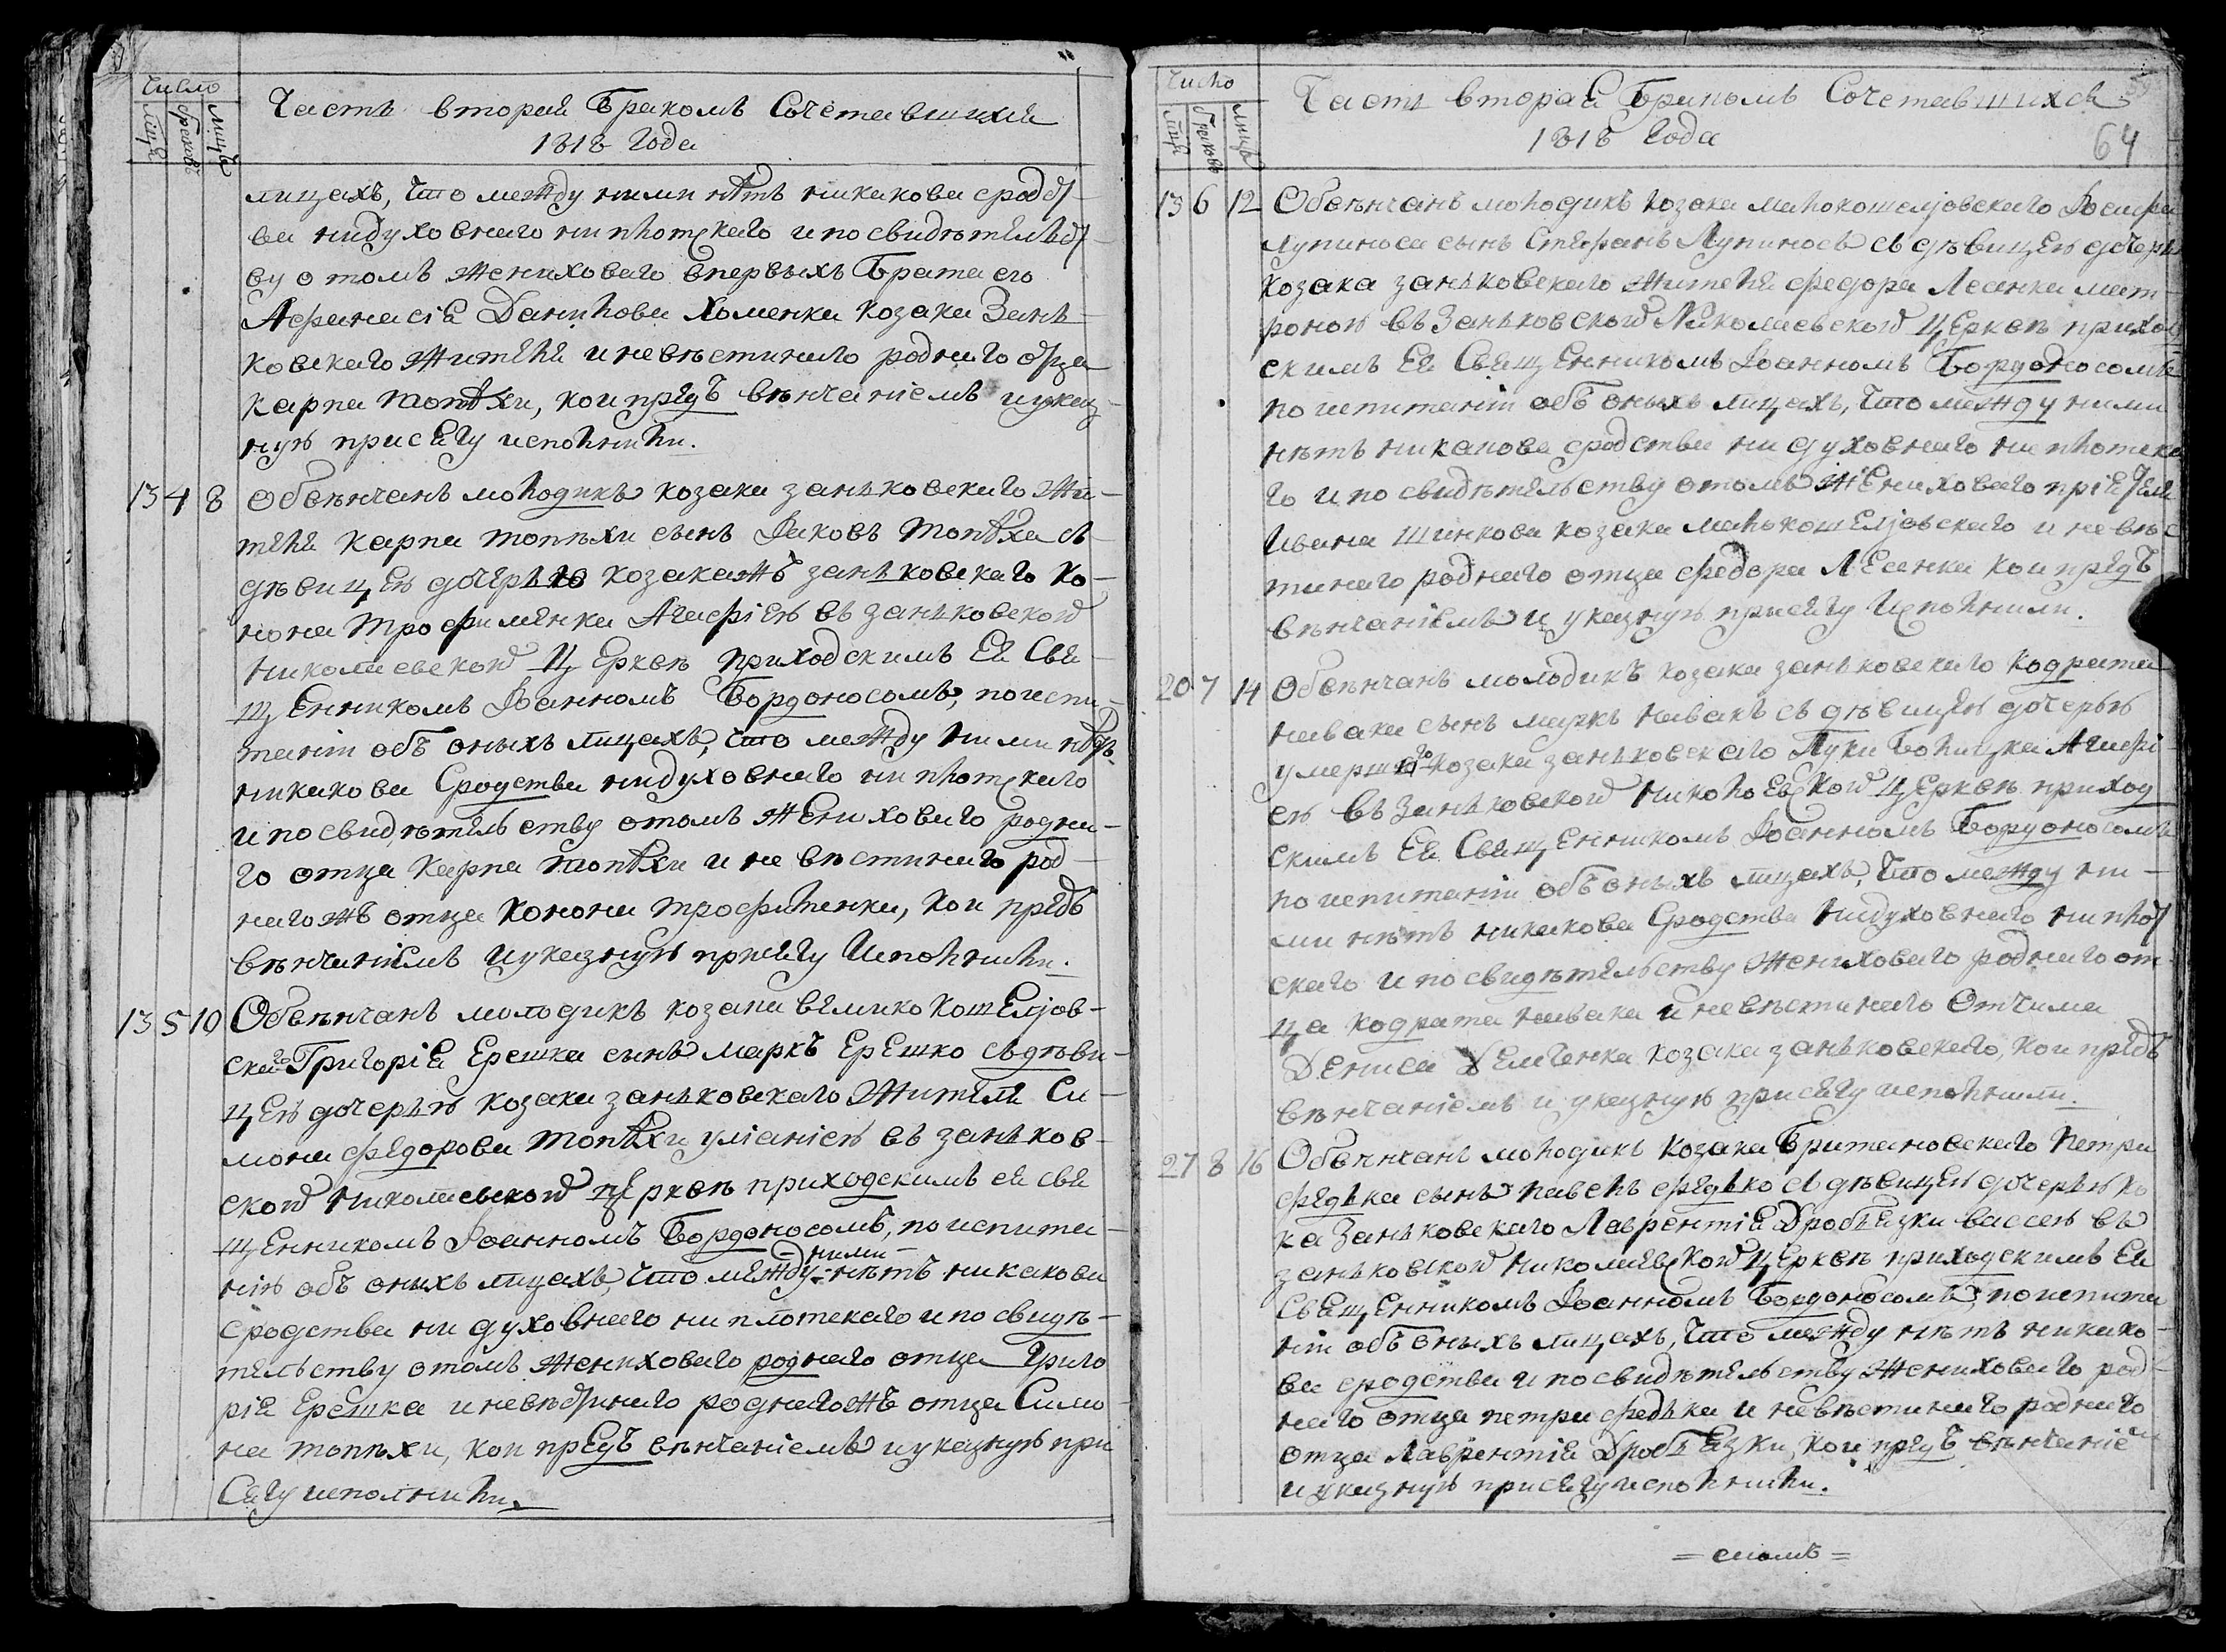 Число
мцъ
браковъ
лицъ
Часть вторая Бракомъ Сочетавшихся
1818 Года
лицахъ, что между ними нѣтъ никакова сродст-
ва нидуховнаго ни плотскаго и по свидѣтельст-
ву о томъ Жениховаго впервыхъ Брата его
Афанасія Данилова Хоменка козака Зань-
ковскаго Жителя и невѣстинаго роднаго отца
Карпа Топѣхи, кои предъ вѣнчаніемъ и указ-
нуѣ присягу исполнили.
13 4 8 Обвѣнчанъ молодикъ козака заньковскаго Жи-
теля Карпа топѣхи сынъ Іаковъ Топѣха съ
дѣвицеѣ дочерью козакажъ заньковскаго Ко-
нона Трофименка Агафіеѣ въ заньковской
Николаевской Церквѣ приходскимъ Ея Свя-
щЕнникомъ Іоанномъ Бордоносомъ, по испи-
таніи объ оныхъ лицахъ, что между ними нѣтъ
никакова Сродства нидуховнаго ни плотскаго
и по свидѣтельству отомъ ЖЕниховаго родна-
го отца Карпа топѣхи и невѣстинаго род-
нагожъ отца Конона трофименка, кои предъ
вѣнчаніемъ и указнуѣ присягу Исполнили.
13 5 10 Обвѣнчанъ молодикъ козака великоКошЕлјов-
скаго Григорія Ерешка сынъ маркъ ЕрЕшко съ дѣви-
цЕѣ дочерьѣ козака заньковскаго Жителя Си-
мона федорова топѣхи уліаніеѣ въ заньков-
ской Николаевской цЕрквѣ приходскимъ ея свя
щЕнникомъ Іоанномъ Бордоносомъ, по испита-
ніѣ объ оныхъ лицахъ, что между ними нѣтъ никакова
сродства ни духовнаго ни плотскаго и по свидѣ-
тельству отомъ Жениховаго роднаго отца Григо
рія Ерешка и невѣстинаго роднагожъ отца Симо
на топѣхи, кои прЕдъ вѣнчаніемъ и указнуѣ при
Сягу исполнили.
Число
мцъ
браковъ
лицъ
Часть вторая Бракомъ Сочетавшихся
1818 Года
64
13 6 12 Обвѣнчанъ молодикъ козака малокошелјовскаго
Лупиноса сынъ Стефанъ Лупиносъ съ дѣвицеѣ дочерь
козака заньковскаго Жителя федора Лесенка мат
роноѣ въ Заньковской Николаевской ЦЕрквѣ приход
скимъ Ея СвящЕнникомъ Іоанномъ Бордоносомъ
по испитаніи объ оныхъ лицахъ, что между ними
нѣтъ никакова сродства ни духовнаго ни плотска
го и по свидѣтельству отомъ ЖЕниховаго пріятеля
Ивана Шинкова козака малокошЕлјовскаго и невѣс
тинаго роднаго отца федора ЛЕсенка кои предъ
вѣнчаніемъ и указнуѣ присягу Исполнили.
20 7 14 Обвѣнчанъ молодикъ козака заньковскаго Кодрата
навака сынъ маркъ Навакъ съ дѣвицеѣ дочерьѣ
умершаго козака заньковскаго Луки Агафі-
еѣ въ Заньковской НиколоЕвской ЦЕрквѣ приход
скимъ Ея СвящЕнникомъ Іоанномъ Бордоносомъ
по испитаніи объ оныхъ лицахъ, что между ни-
ми нѣтъ никакова Сродства Нидуховнаго ни плот
скаго и по свидѣтельству Жениховаго роднаго от-
ца Кодрата навака и невѣстинаго Отчима
Дениса Демченка козака заньковскаго, кои предъ
вѣнчаніемъ и указнуѣ присягу исполнили.
27 8 16 Обвѣнчанъ молодикъ козака Британовскаго Петра
федька сынъ Павелъ федько съ дѣвицеѣ дочерьѣ ко
ка Заньковскаго Лаврентія Дробязки васseѣ въ
заньковской Николаевской ЦЕрквѣ приходскимъ Ея
СвящЕнникомъ Іоанномъ Бордоносомъ, по испита
ніи объ оныхъ лицахъ, что между нѣтъ никако-
ва сродства и по свидѣтельству Жениховаго род-
наго отца петра федька и невѣстинаго роднаго
отца Лаврентія Дробязки, кои предъ вѣнчаніем
и указнуѣ присягу исполнили.